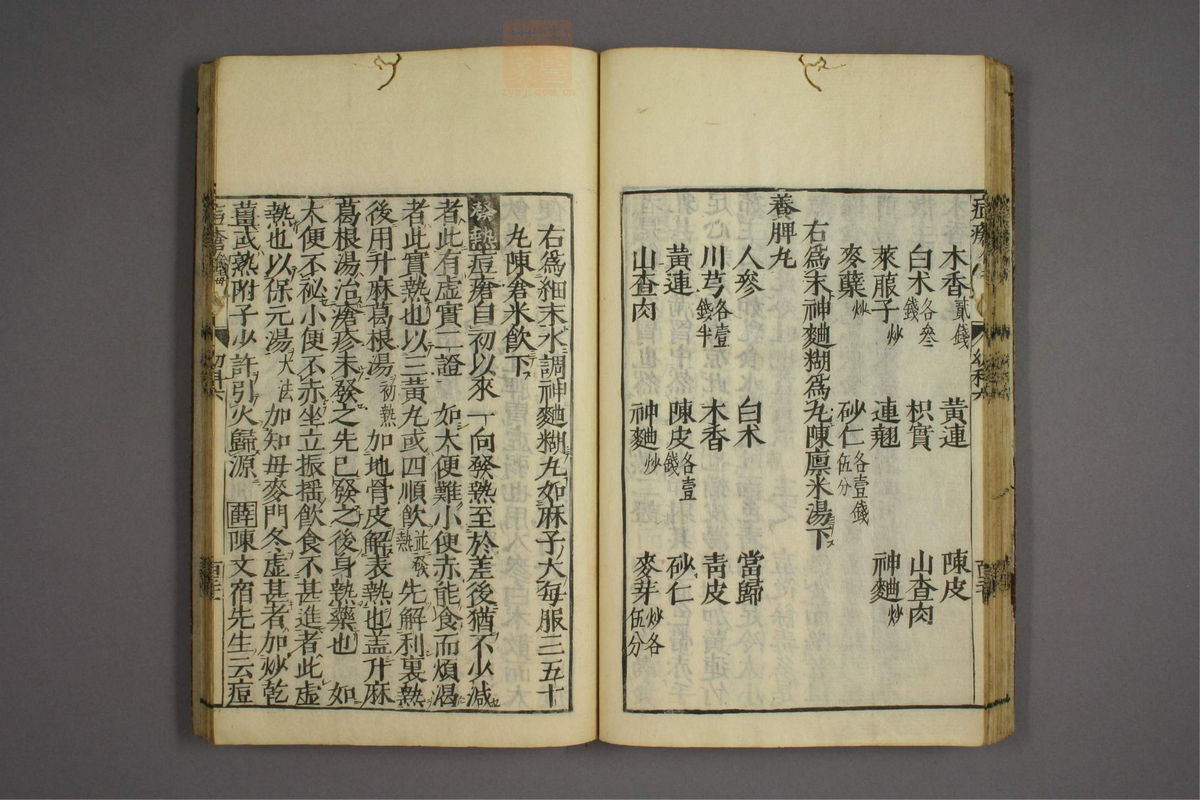 木香貳錢 黃連 陳皮
白朮各叄錢 枳實 山查肉
萊菔子炒 連翹 神麯炒
麥蘗炒 砂仁各壹錢伍分
右爲末神麯糊爲丸陳廪米湯下
養脾丸
人參 白朮 當歸
川芎各壹錢半 木香 靑皮
黃連 陳皮各壹錢 砂仁
山查肉 神麯炒 麥芽炒各伍分
右爲細末水調神麯糊丸如麻子大每服三五十
丸陳倉米飲下
發熱 痘瘡自初以來一向發熱至於差後猶不少減
者此有虛實二證 如大便難小便赤能食而煩渴
者此實熱也以三黃丸或四順飲並發熱先解利裏熱
後用升麻葛根湯初熱加地骨皮解表熱也盖升麻
葛根湯治瘡疹未發之先已發之後身熱藥也 如
大便不祕小便不赤坐立振搖飲食不甚進者此虛
熱也以保元湯大法加知毋麥門冬虛甚者加炒乾
薑或熟附子少許引火歸源 薛陳文宿先生云痘